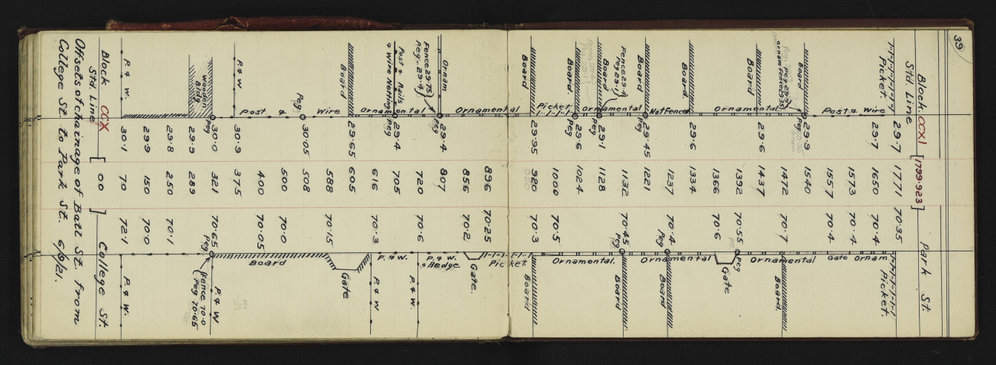 39
Block CCXI [1799·923] Park St.
Std Line
Picket. 29·7 1771 70·35 Picket.
29·7 1650 70·4 Ornam
Post & Wire 1573 70·4 Gate
1557 70·4
Board 29·9 1540
Peg
1472 70·7 Board
Board 29·4 1437 Ornamental
Ornamental 1392 70·55 Peg
1366 70·6 Gate
Board 29·6 1334
Not fence 1237 70·4 Ornamental Board
Peg
Board 29·45 1221
Peg
Fence 29·9 1132 70·45 Board
Peg 29·1 Peg
Board 29·1 1128
Peg
Ornamental
Board. 29·6 1024 Ornamental.
Peg
Picket 1000 70·5
Board 29·95 920 70·3 Board
896 70·25 Picket
Ornamental 856 70·2 Gate.
Ornam 29·4 807
Peg
Fence 29·75 720 70·6 P. & W.
Peg. 29·4 Hedge
Ornamental
Post & Rails 29·4 705 P. & W.
& Wire Netting Peg
616 70·3 P & W
Board 29·65 605 Gate
Wire 588 70·15
Peg 30·05 508
500 70·0
Post & 400 70·05 Board
P & W 30·9 375
Wooden Bldg 30·0 321 70·65 P & W
Peg Peg
Fence 70·0
Peg 70·65
29·9 289
29·8 250 70·1
29·9 150 70·0
P. & W. 30·1 70 72·1 P & W.
Block CCX [00] College St.
Std Line
Offsets of chainage of Batt St. from
College St. to Park St. 6/9/21.